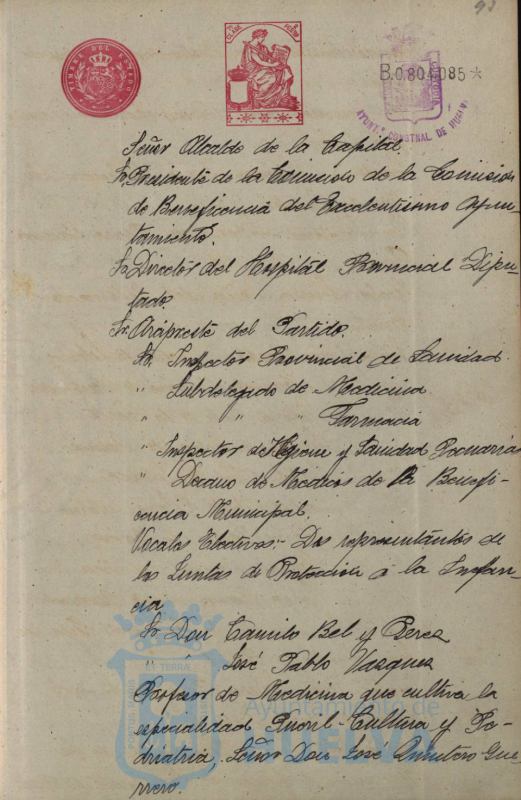 93
TIMBRE DEL ESTADO
B.0.804.085*
AYUNTº CONSTNAL DE HUELVA
Señor Alcalde de la Capital.
Sr. Presidente de la Comisión de la Comisión
de Beneficencia del Excelentísimo Ayun-
tamiento.
Sr. Director del Hospital Provincial Dipu-
tado.
Sr. Arcipreste del Partido.
Sr. Inspector Provincial de Sanidad.
" Subdelegado de Medicina
" " " Farmacia
" Inspector de Higiene y Sanidad Pecuarias
" Decano de Médicos de la Benefi-
cencia Municipal.
Vocales Electivos:- Dos representantes de
las Juntas de Protección á la Infan-
cia
Sr. Don Camilo Bel y Perea
" " José Pablo Vazquez
Profesor de Medicina que cultiva la
especialidad Pueril-Cultura y Pe-
driatria, Señor Don José Quintero Gue-
rrero.
Ayuntamiento de
HUELVA